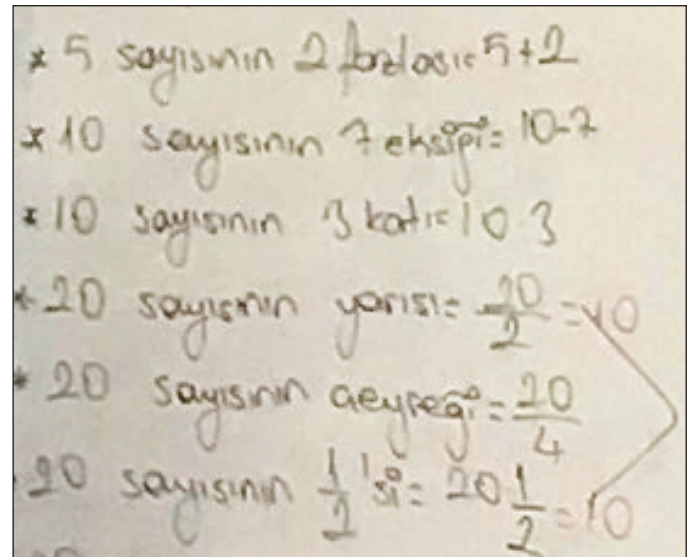 * 5 sayısının 2 fazlası = 5+2
* 10 sayısının 7 eksiği = 10-7
* 10 sayısının 3 katı = 10 3
* 20 sayısının yarısı = 20/2 = 10
* 20 sayısının çeyreği = 20/4
20 sayısının 1/2 'si = 20 1/2 = 10